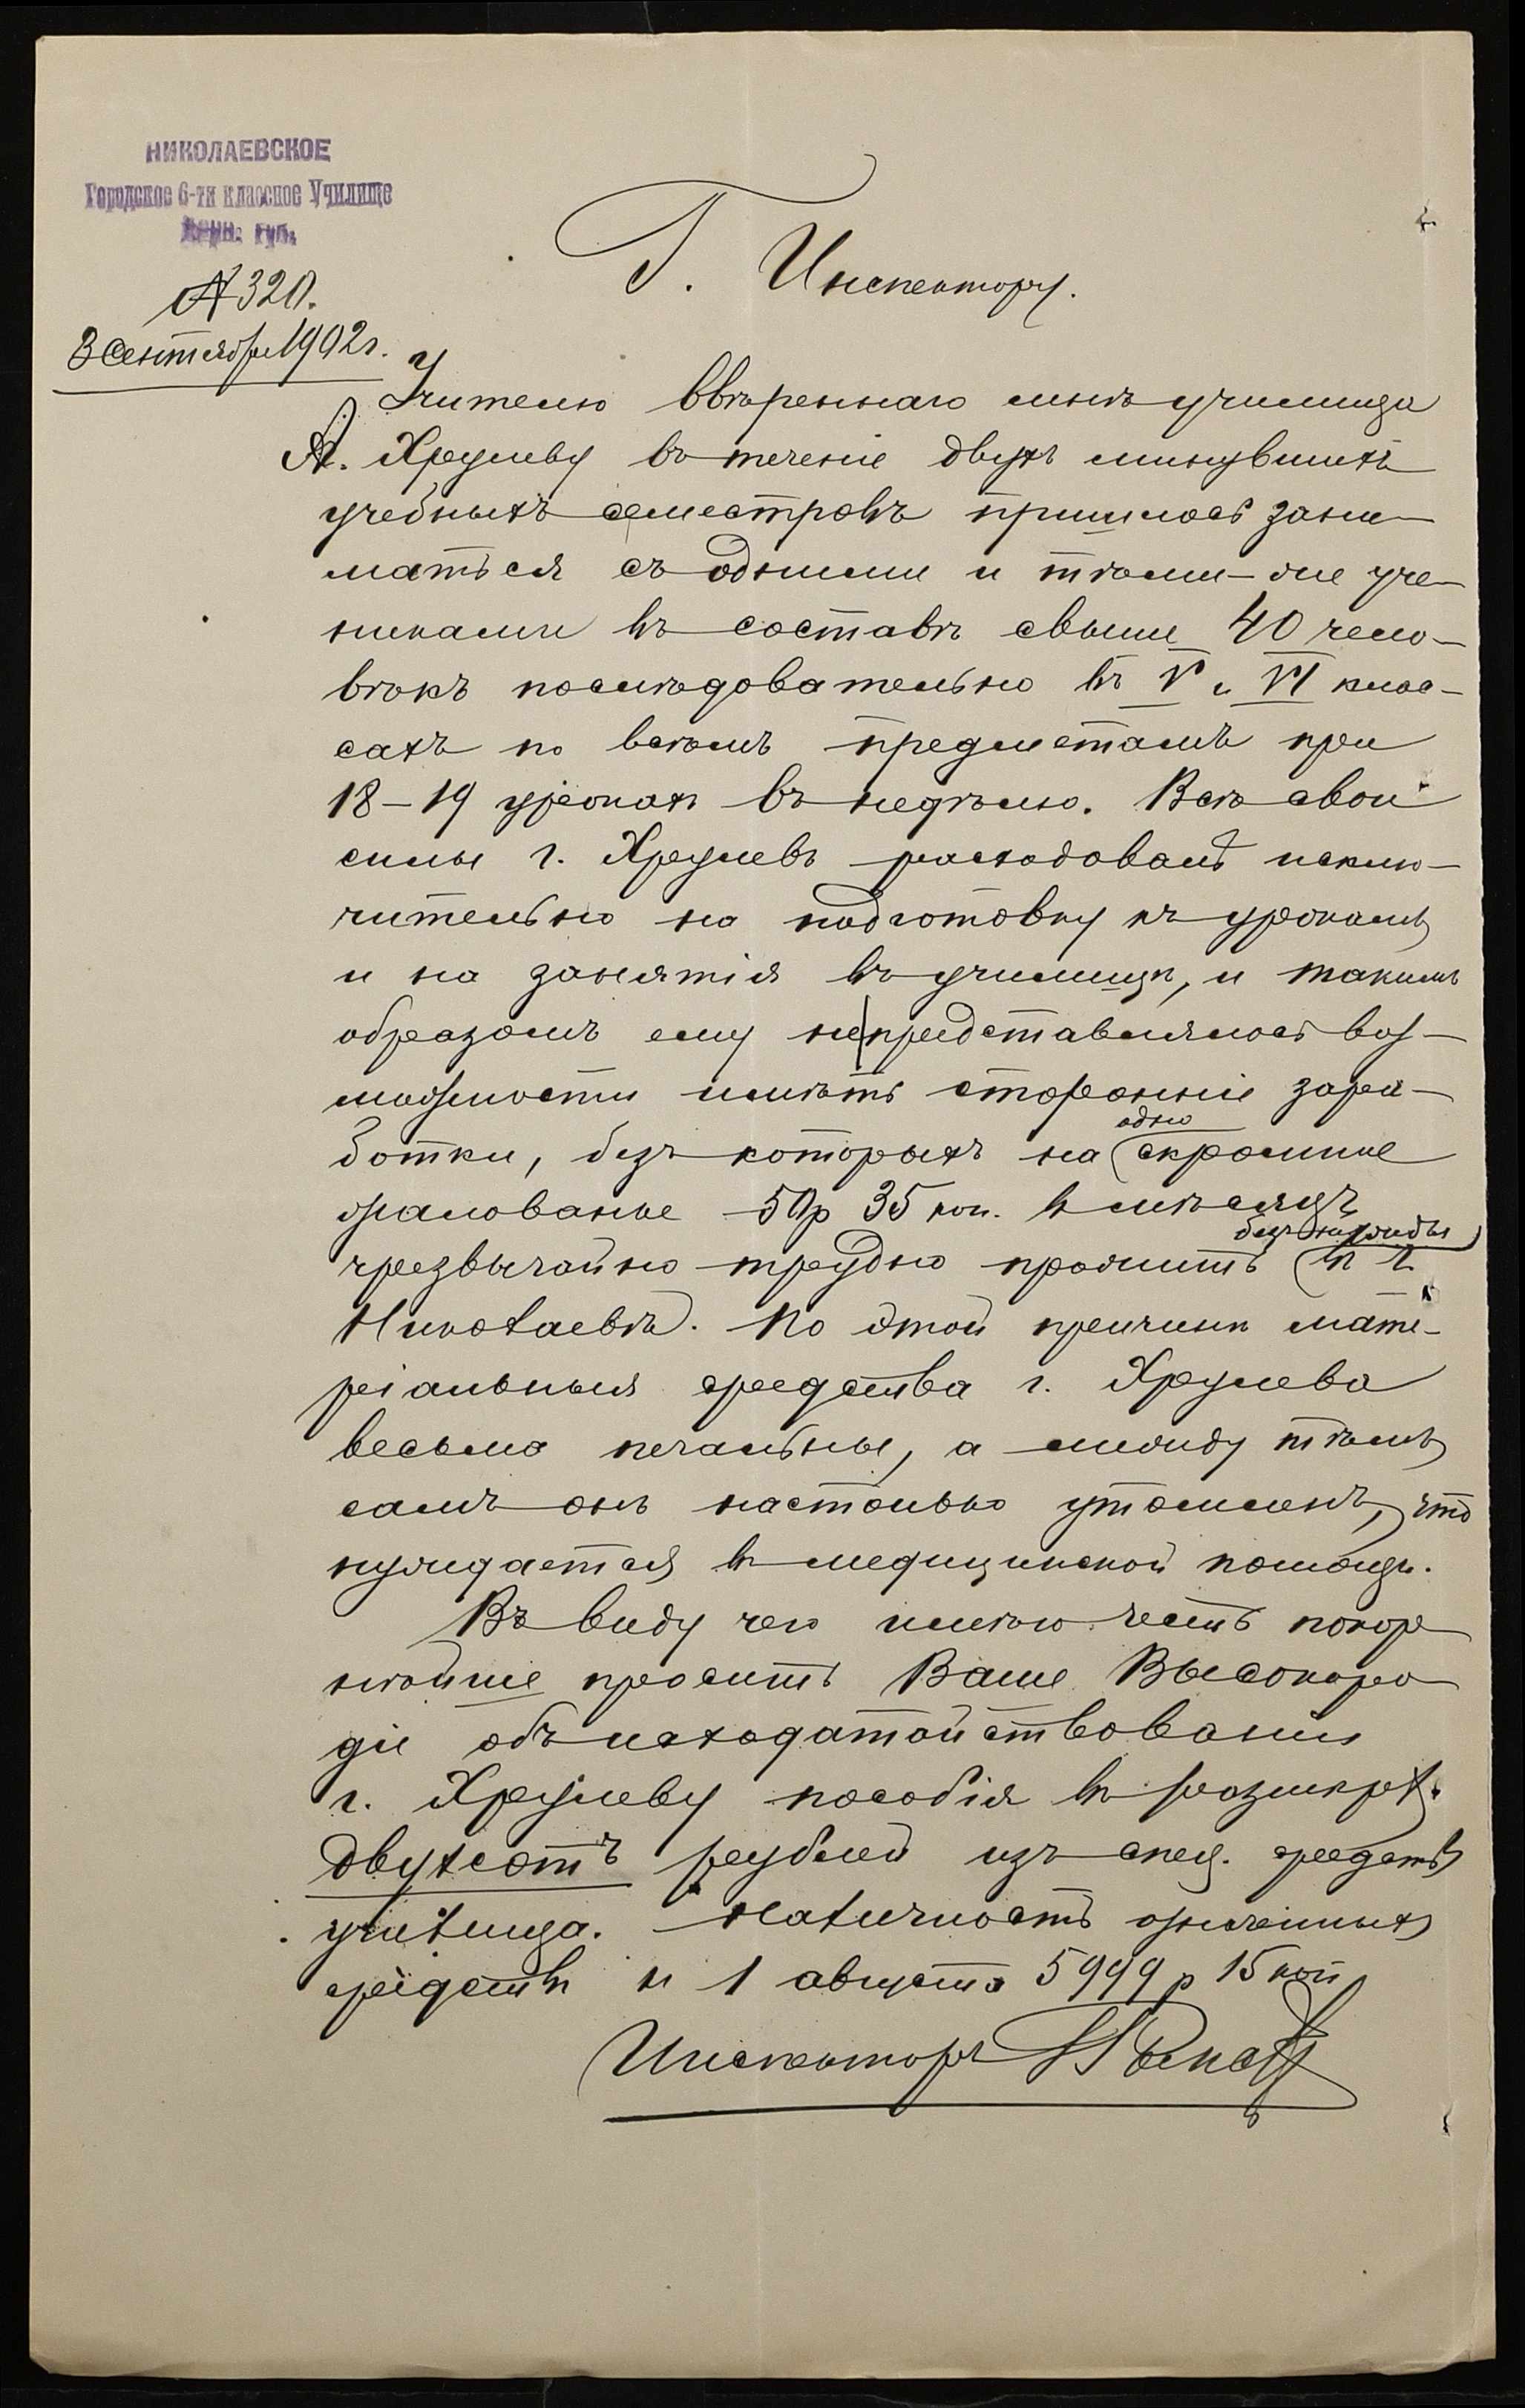 НИКОЛАЕВСКОЕ
Городское 6-ти классное Училище
Херс. губ.
№ 320.
3 Сентября 1902 г.
Г. Инспектору.
Учителю ввѣреннаго мнѣ училища
А. Хрулеву въ теченіе двухъ минувшихъ
учебныхъ семестровъ пришлось зани-
маться съ одними и тѣми-же уче-
никами въ составѣ свыше 40 чело-
вѣкъ послѣдовательно въ V и VI клас-
сахъ по всѣмъ предметамъ при
18-19 урокахъ въ недѣлю. Всѣ свои
силы г. Хрулевъ расходовалъ исклю-
чительно на подготовку къ урокамъ
и на занятія въ училищѣ, и такимъ
образомъ ему не представлялось воз-
можности имѣть сторонніе зара-
ботки, безъ которыхъ на одно скромное
жалованье 50 р 35 коп. въ мѣсяцъ
чрезвычайно трудно прожить безъ нужды въ г.
Николаевѣ. По этой причинѣ мате-
ріальныя средства г. Хрулева
весьма печальны, а между тѣмъ
самъ онъ настолько утомленъ, что
нуждается въ медицинской помощи.
Въ виду чего имѣю честь покор
нѣйше просить Ваше Высокоро
діе объ исходатайствованіи
г. Хрулеву пособія въ размѣрѣ
двухсотъ рублей изъ спец. средствъ
училища. Наличность означенныхъ
средствъ къ 1 августа 5999 р 15 коп
Инспекторъ